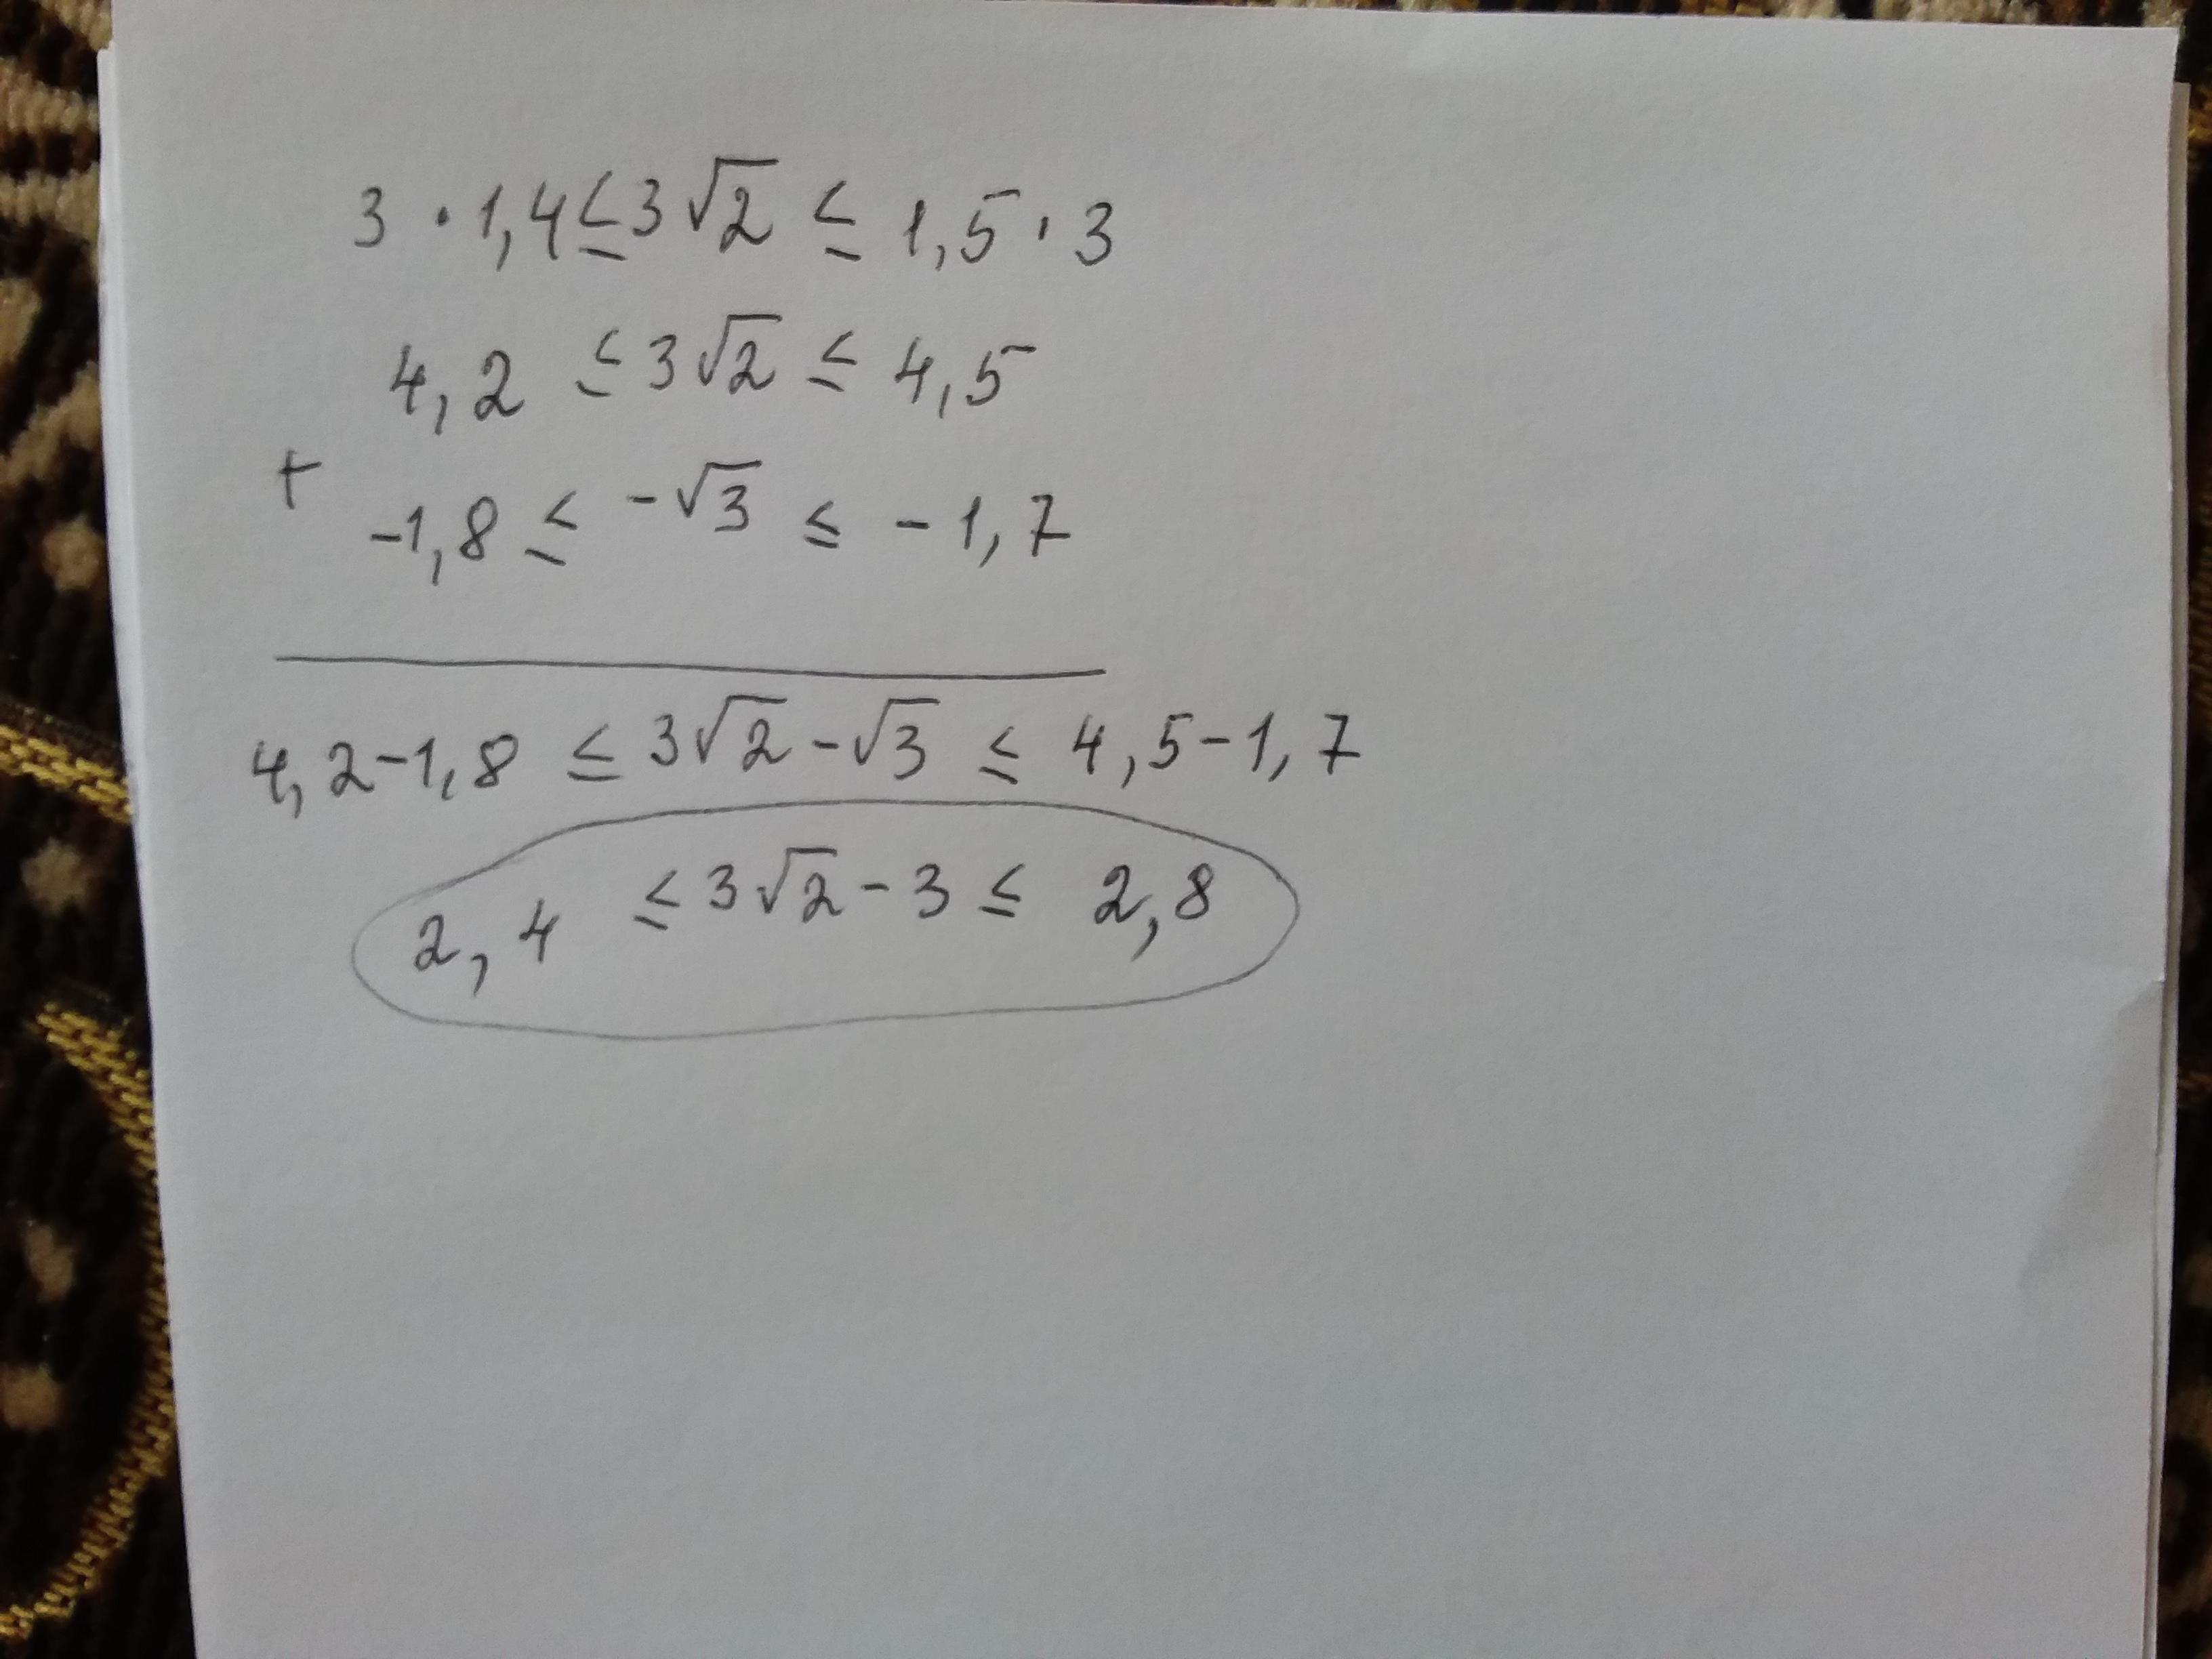 3 · 1,4 ≤ 3√2 ≤ 1,5 · 3
4,2 ≤ 3√2 ≤ 4,5
+
-1,8 ≤ -√3 ≤ -1,7
4,2-1,8 ≤ 3√2-√3 ≤ 4,5-1,7
2,4 ≤ 3√2-3 ≤ 2,8